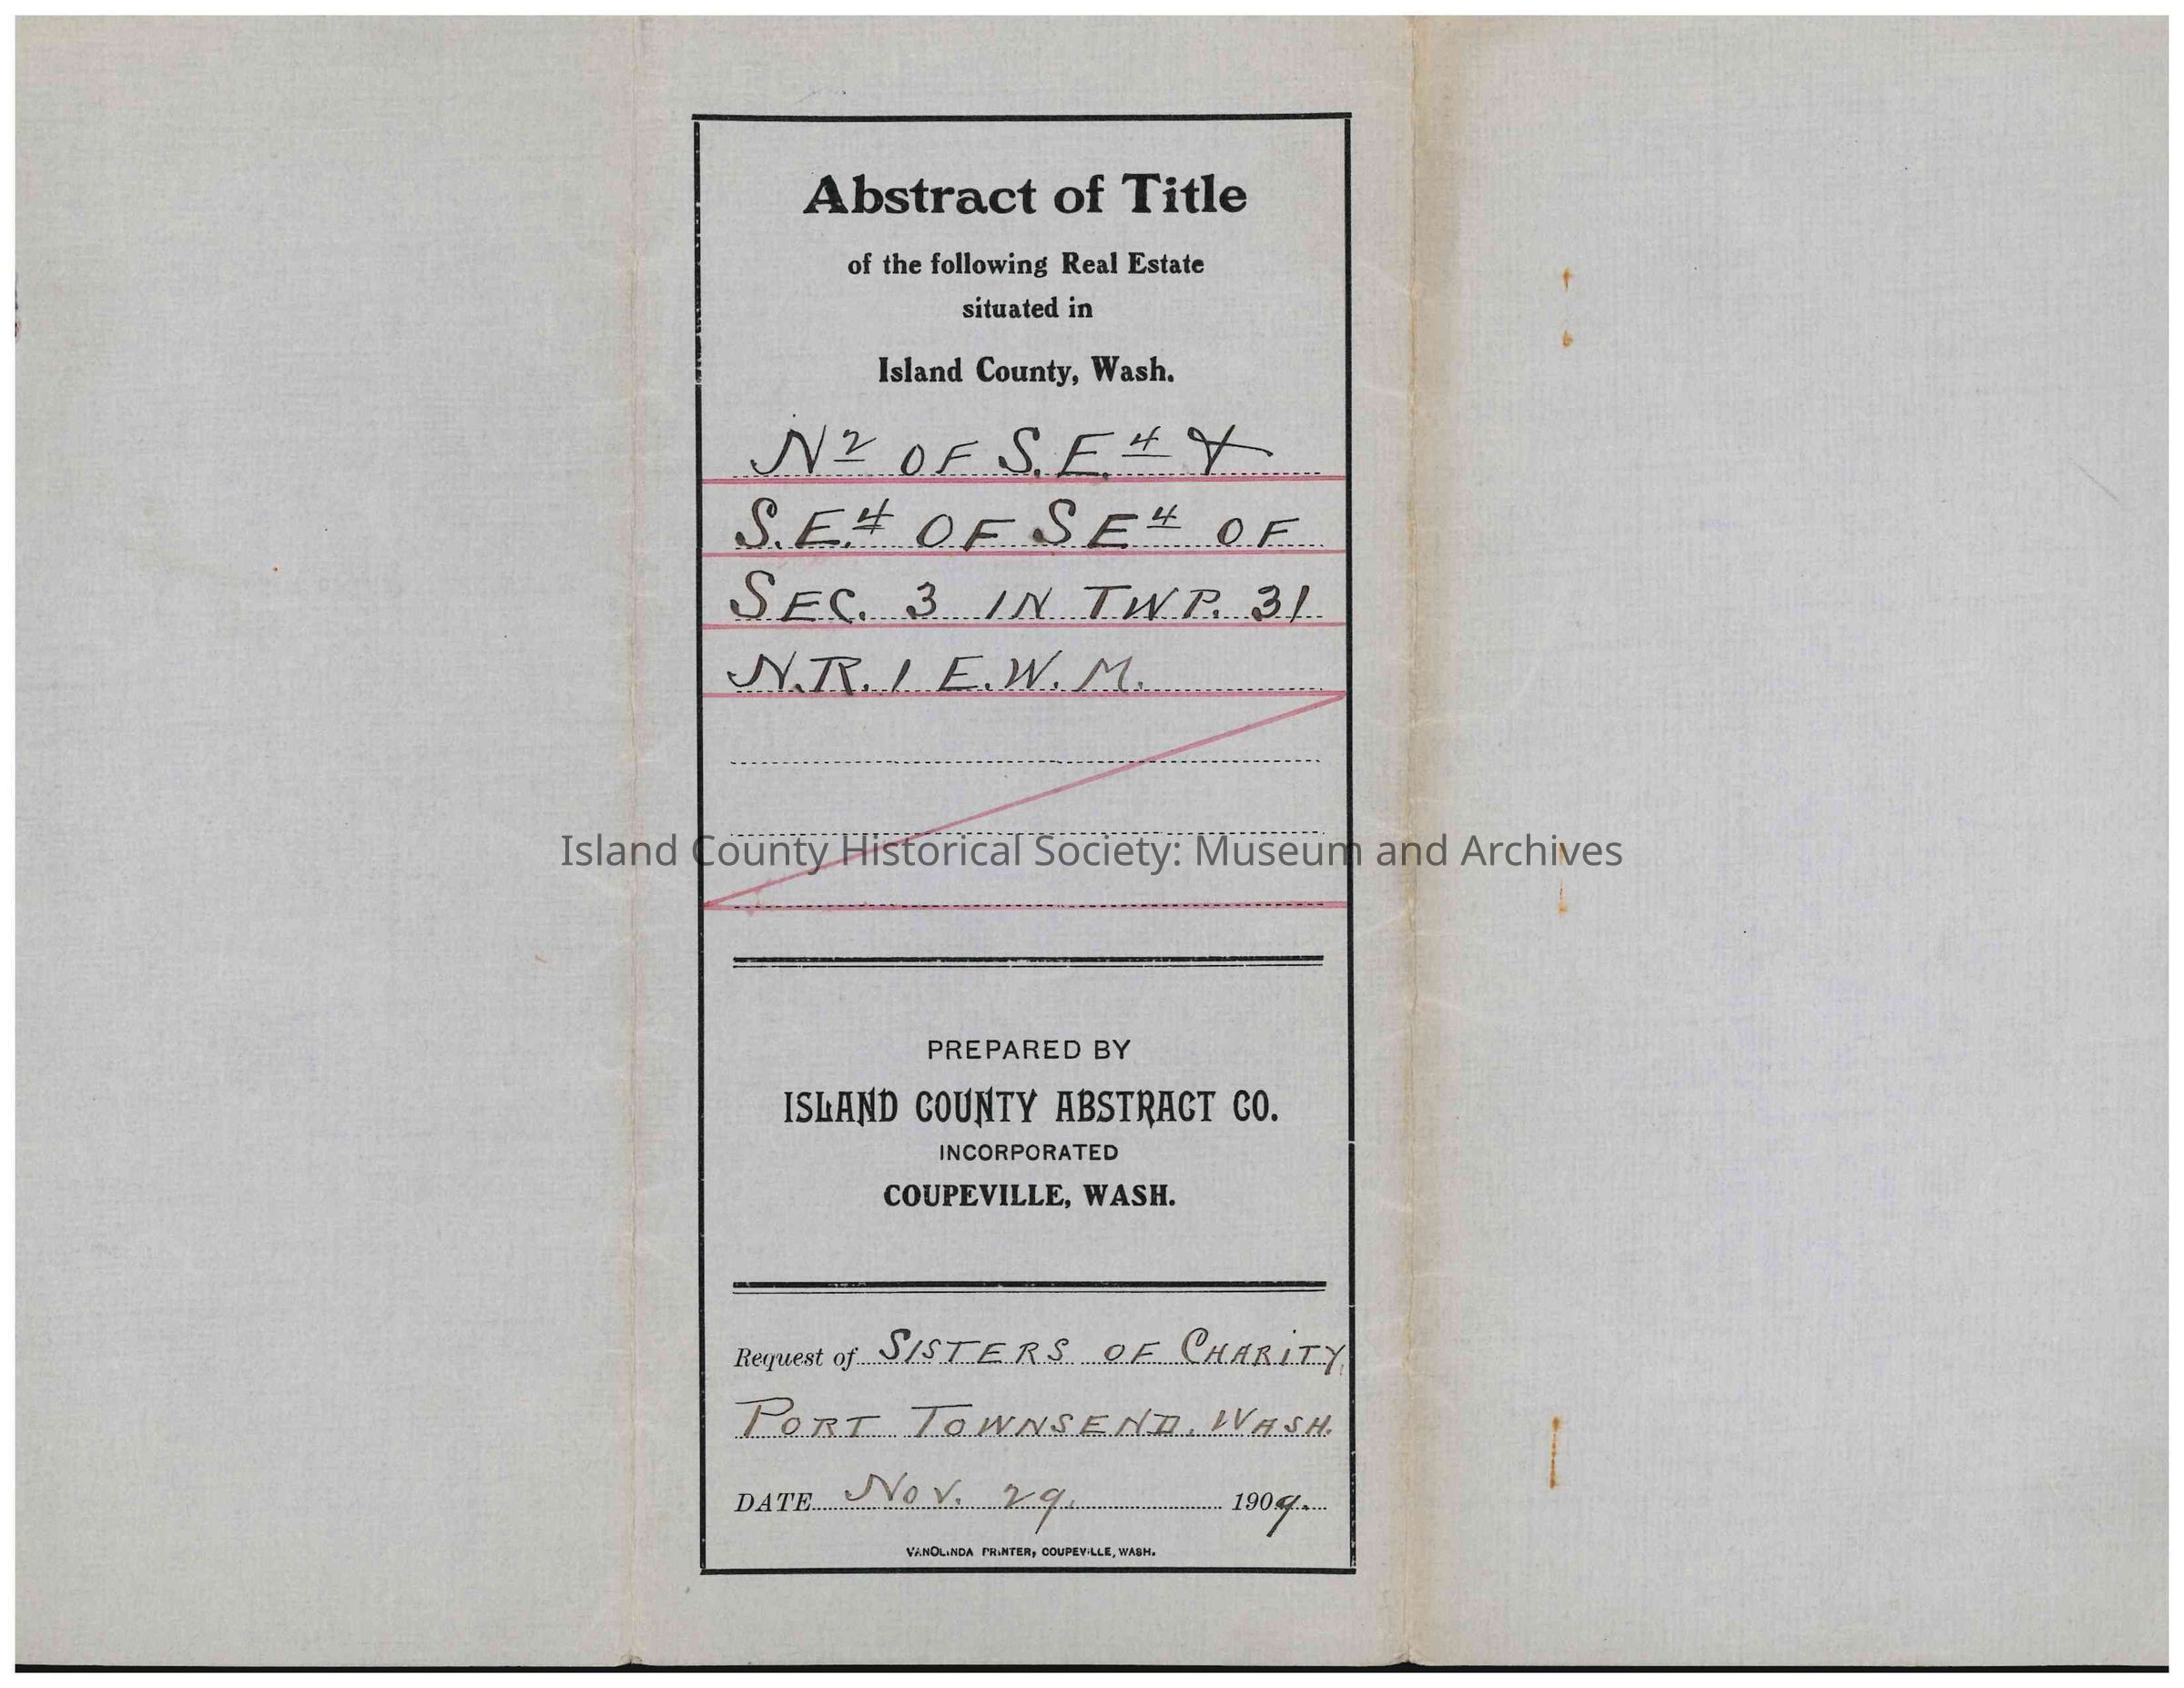 Abstract of Title
of the following Real Estate
situated in
Island County, Wash.
N2 OF S.E.4 &
S.E.4 OF SE4 OF
SEC. 3 IN TWP. 31
N.R. 1 E.W.M.
Island County Historical Society: Museum and Archives
PREPARED BY
ISLAND COUNTY ABSTRACT CO.
INCORPORATED
COUPEVILLE, WASH.
Request of SISTERS OF CHARITY,
PORT TOWNSEND. WASH.
DATE NOV. 29. 1909.
VANOLINDA PRINTER, COUPEVILLE, WASH.